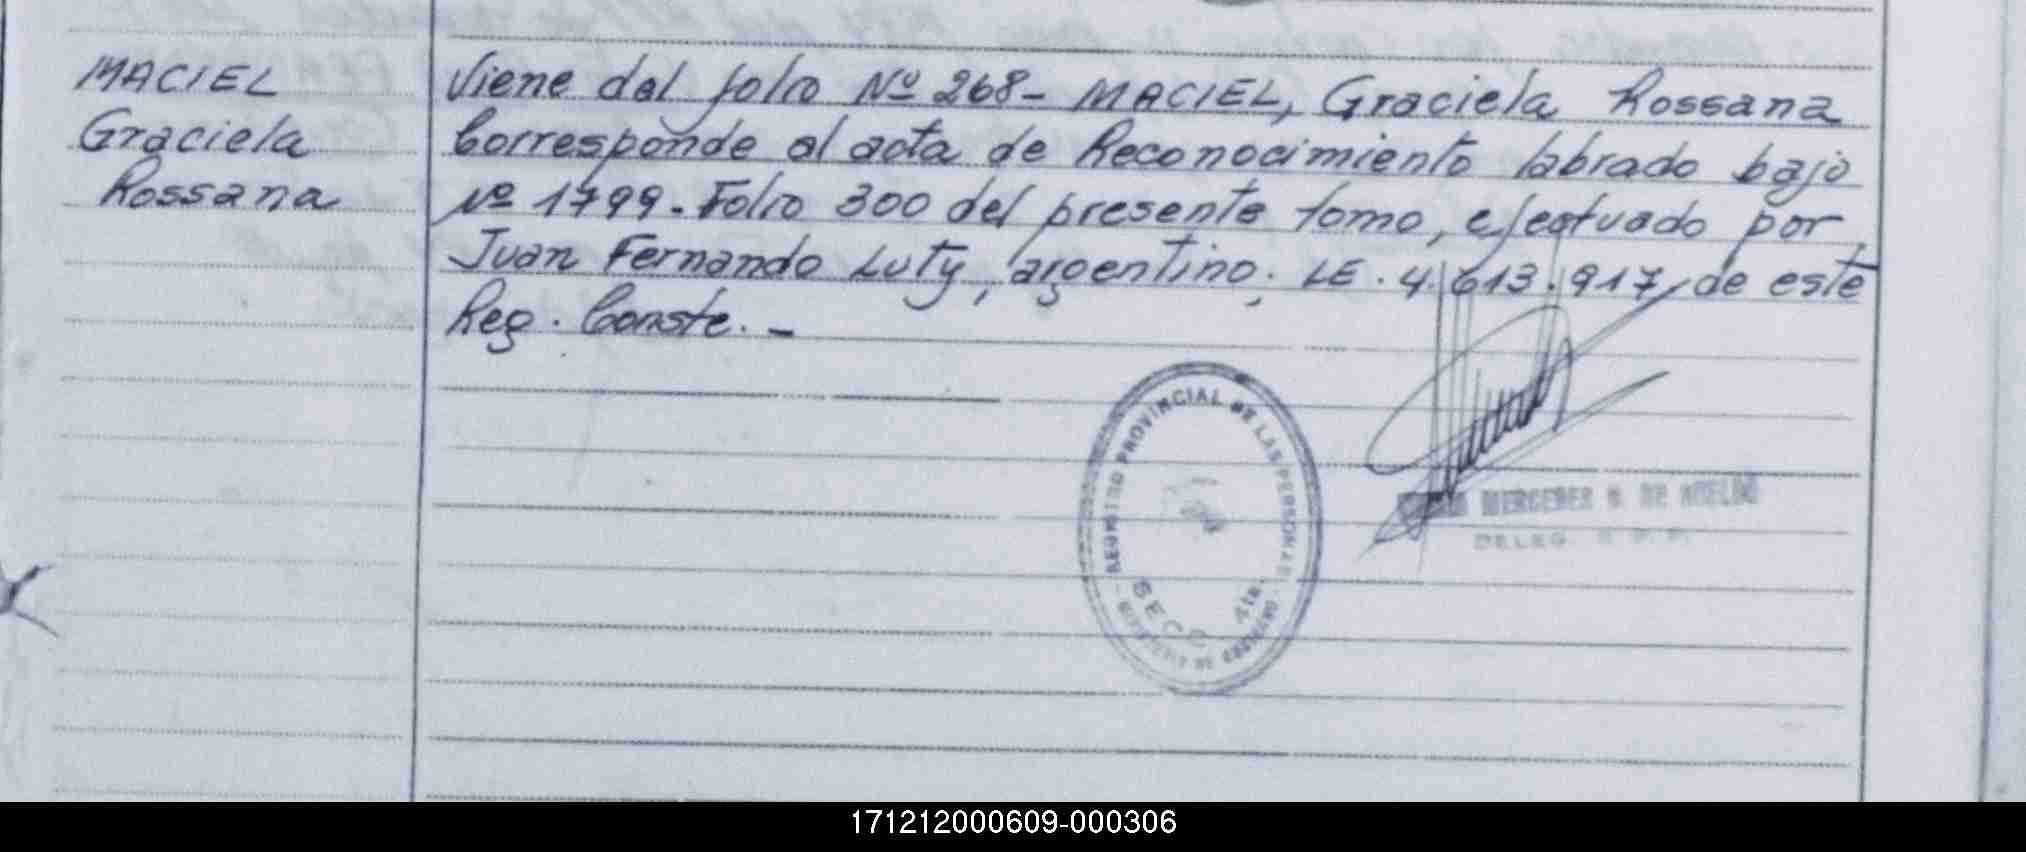 MACIEL
Graciela
Rossana
Viene del folio Nº 268 - MACIEL, Graciela Rossana
Corresponde al acta de Reconocimiento labrado bajo
Nº 1799. Folio 300 del presente tomo, efectuado por
Juan Fernando Luty, argentino. LE. 4.613.917, de este
Reg. Conste. -
REGISTRO PROVINCIAL DE LAS PERSONAS
SECC. 4ta.
MERCEDES DE
DELEG.
171212000609-000306